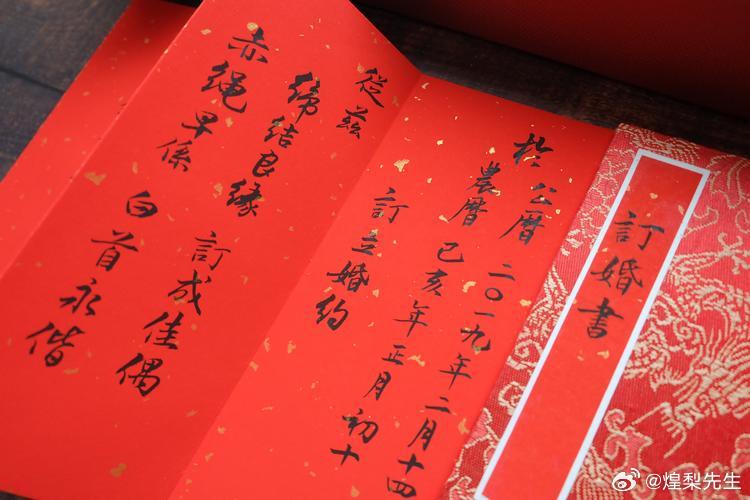 訂婚書
於公曆二〇一九年二月十四
農曆己亥年正月初十
訂立婚約
從兹
締結良缘 訂成佳偶
赤绳早係 白首永偕
@煌梨先生